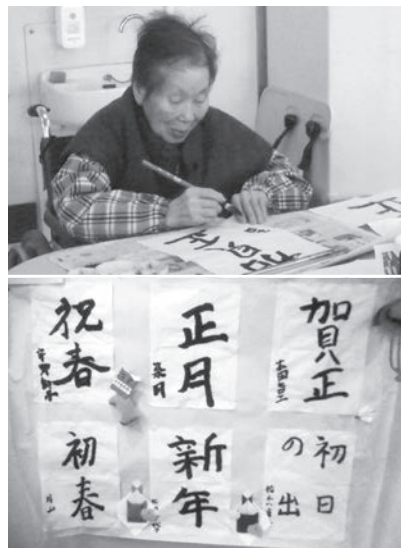 賀正
賀正
正月
祝春
初日
の出
新年
初春